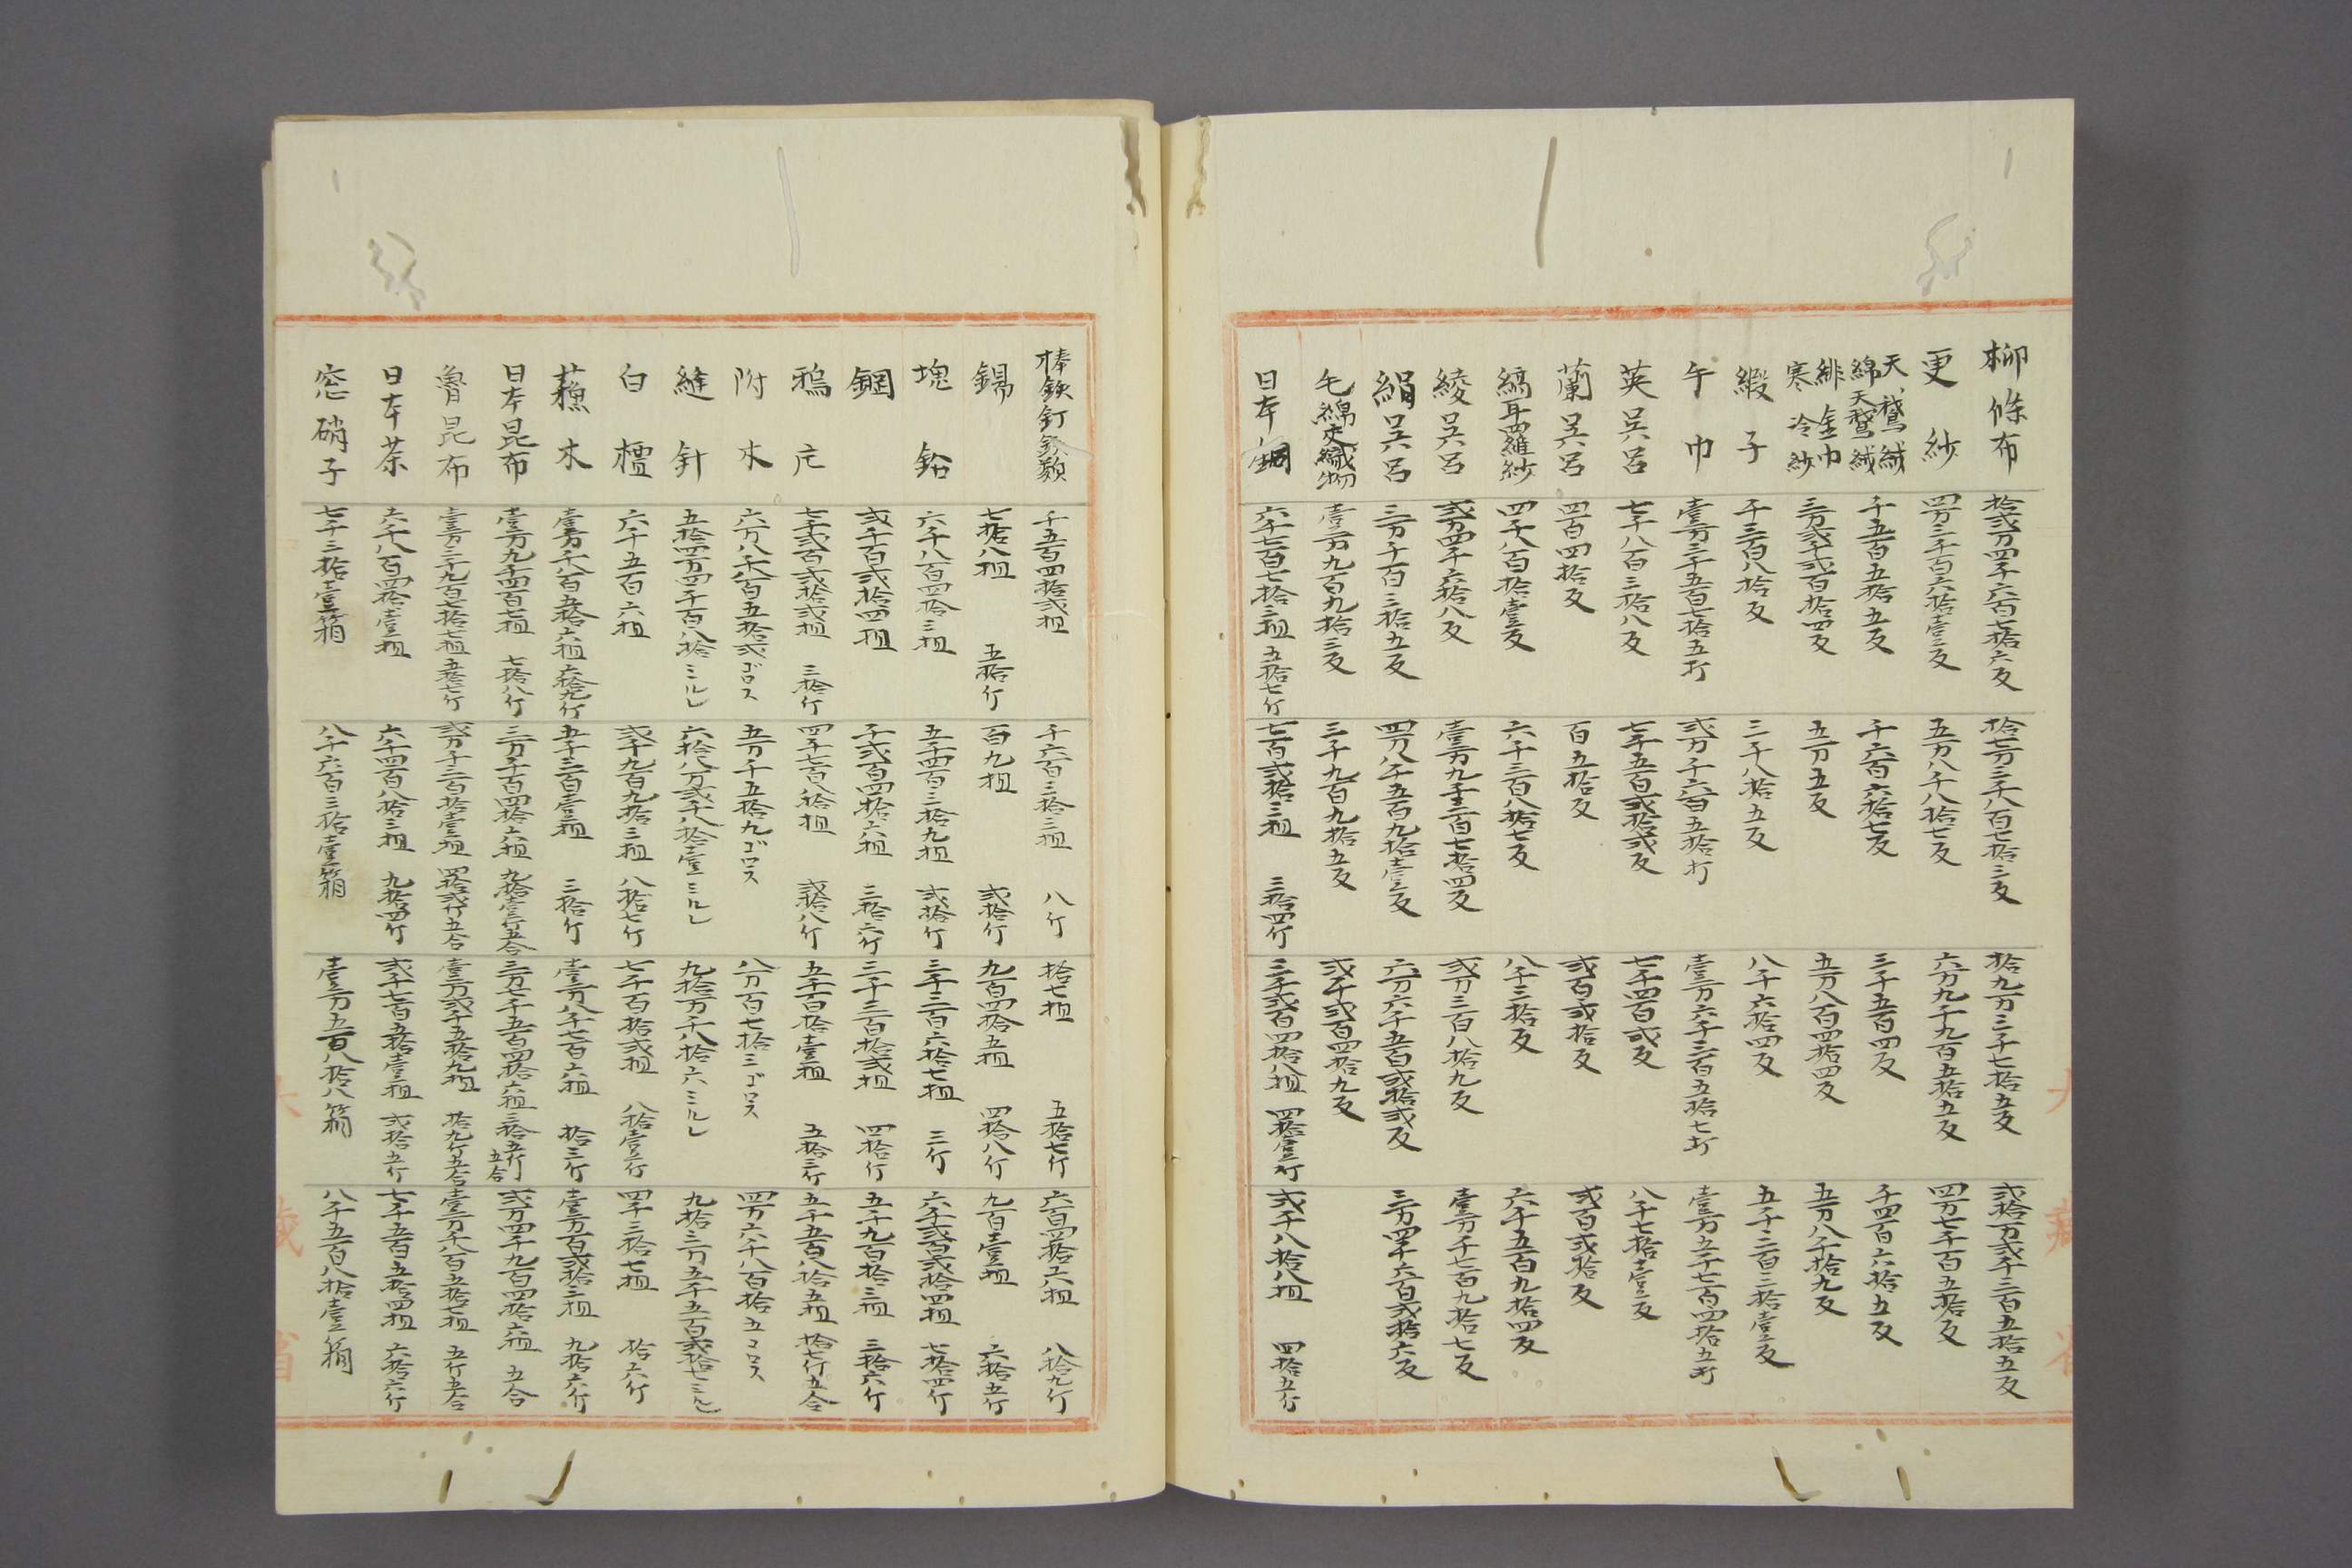 柳條布 拾弐万四千六百七拾六反 拾七万三千八百七拾三反 拾九万三千七拾五反 弐拾万弐千三百五拾五反
更紗 四万三千百六拾壹反 五万八千八拾七反 六万九千九百五拾五反 四万七千百五拾反
天鵞絨 綿天鵞絨 千五百五拾五反 千六百六拾七反 三千五百四反 千四百六拾五反
緋金巾 寒冷紗 三万弐千弐百拾四反 五万五反 五万八百四拾四反 五万八千拾九反
緞子 千三百八拾反 三千八拾五反 八千六拾四反 五千二百三拾壹反
手巾 壹万三千五百七拾五打 弐万千六百五拾打 壹万六千三百五拾七打 壹万五千七百四拾五打
英呉呂 七千八百三拾八反 七千五百弐拾弐反 七千四百弐反 八千七拾壹反
蘭呉呂 四百四拾反 百五拾反 弐百弐拾反 弐百弐拾反
縞耳西羅紗 四千八百拾壹反 六千三百八拾七反 八千三拾反 六千五百九拾四反
綾呉呂 弐万四千六拾八反 壹万九千三百七拾四反 弐万三百八拾九反 壹万千七百九拾七反
絹呉呂 三万千百三拾五反 四万八千五百九拾壹反 六万六千五百弐拾弐反 三万四千六百弐拾六反
毛綿交織物 壹万九百九拾三反 三千九百九拾五反 弐千弐百四拾九反
日本銅 六千七百七拾三担 五拾七斤 七百弐拾三担 三拾四斤 三千弐百四拾八担 四拾壹斤 弐千八拾八担 四拾五斤
棒鉄釘鉄類 千五百四拾弐担 千六百三拾三担 八斤 拾七担 五拾七斤 六百四拾六担 八拾九斤
錫 七拾八担 五拾斤 百九担 弐拾斤 九百四拾五担 四拾八斤 九百壹担 六拾五斤
塊鉛 六千八百四拾三担 五千四百三拾九担 弐拾斤 三千三百六拾七担 三斤 六千弐百弐拾四担 七拾四斤
鋼 弐千百弐拾四担 千弐百四拾六担 三拾六斤 三千三百拾弐担 四拾斤 五千九百拾三担 三拾六斤
七千弐百弐拾弐担 三拾斤 四千七百八拾担 弐拾八斤 五千百拾壹担 五拾三斤 五千五百八拾五担 拾七斤五合
附木 六万八千八百五拾弐ゴロス 五万千五拾九ゴロス 八万百七拾三ゴロス 四万六千八百拾五コロス
縫針 五拾四万四千百八拾ミルレ 六拾八万弐千八拾壹ミルレ 九拾万千八拾六ミルレ 九拾三万五千五百弐拾七ミルレ
白檀 六千五百六担 弐千九百九拾三担 八拾七斤 七千百拾弐担 八拾壹斤 四千三拾七担 拾六斤
蘓木 壹万千八百五拾六担 六拾九斤 五千三百壹担 三拾斤 壹万八千七百六担 拾三斤 壹万百弐拾三担 九拾六斤
日本昆布 壹万九千四百七担 七拾八斤 三万千百四拾六担 九拾壹斤五合 三万七千五百四拾六担 三拾五斤五合 弐万四千九百四拾六担 五合
魯昆布 壹万三千九百七拾七担 五拾七斤 弐万千三百拾壹担 四拾弐斤五合 壹万弐千五拾九担 拾九斤五合 壹万千八百五拾七担 五斤五合
日本茶 六千八百四拾壹担 六千四百八拾三担 九拾四斤 弐千七百五拾壹担 弐拾五斤 七千五百五拾四担 六拾六斤
窓硝子 七千三拾壹箱 八千六百三拾壹箱 壹万五百八拾八箱 八千五百八拾壹箱